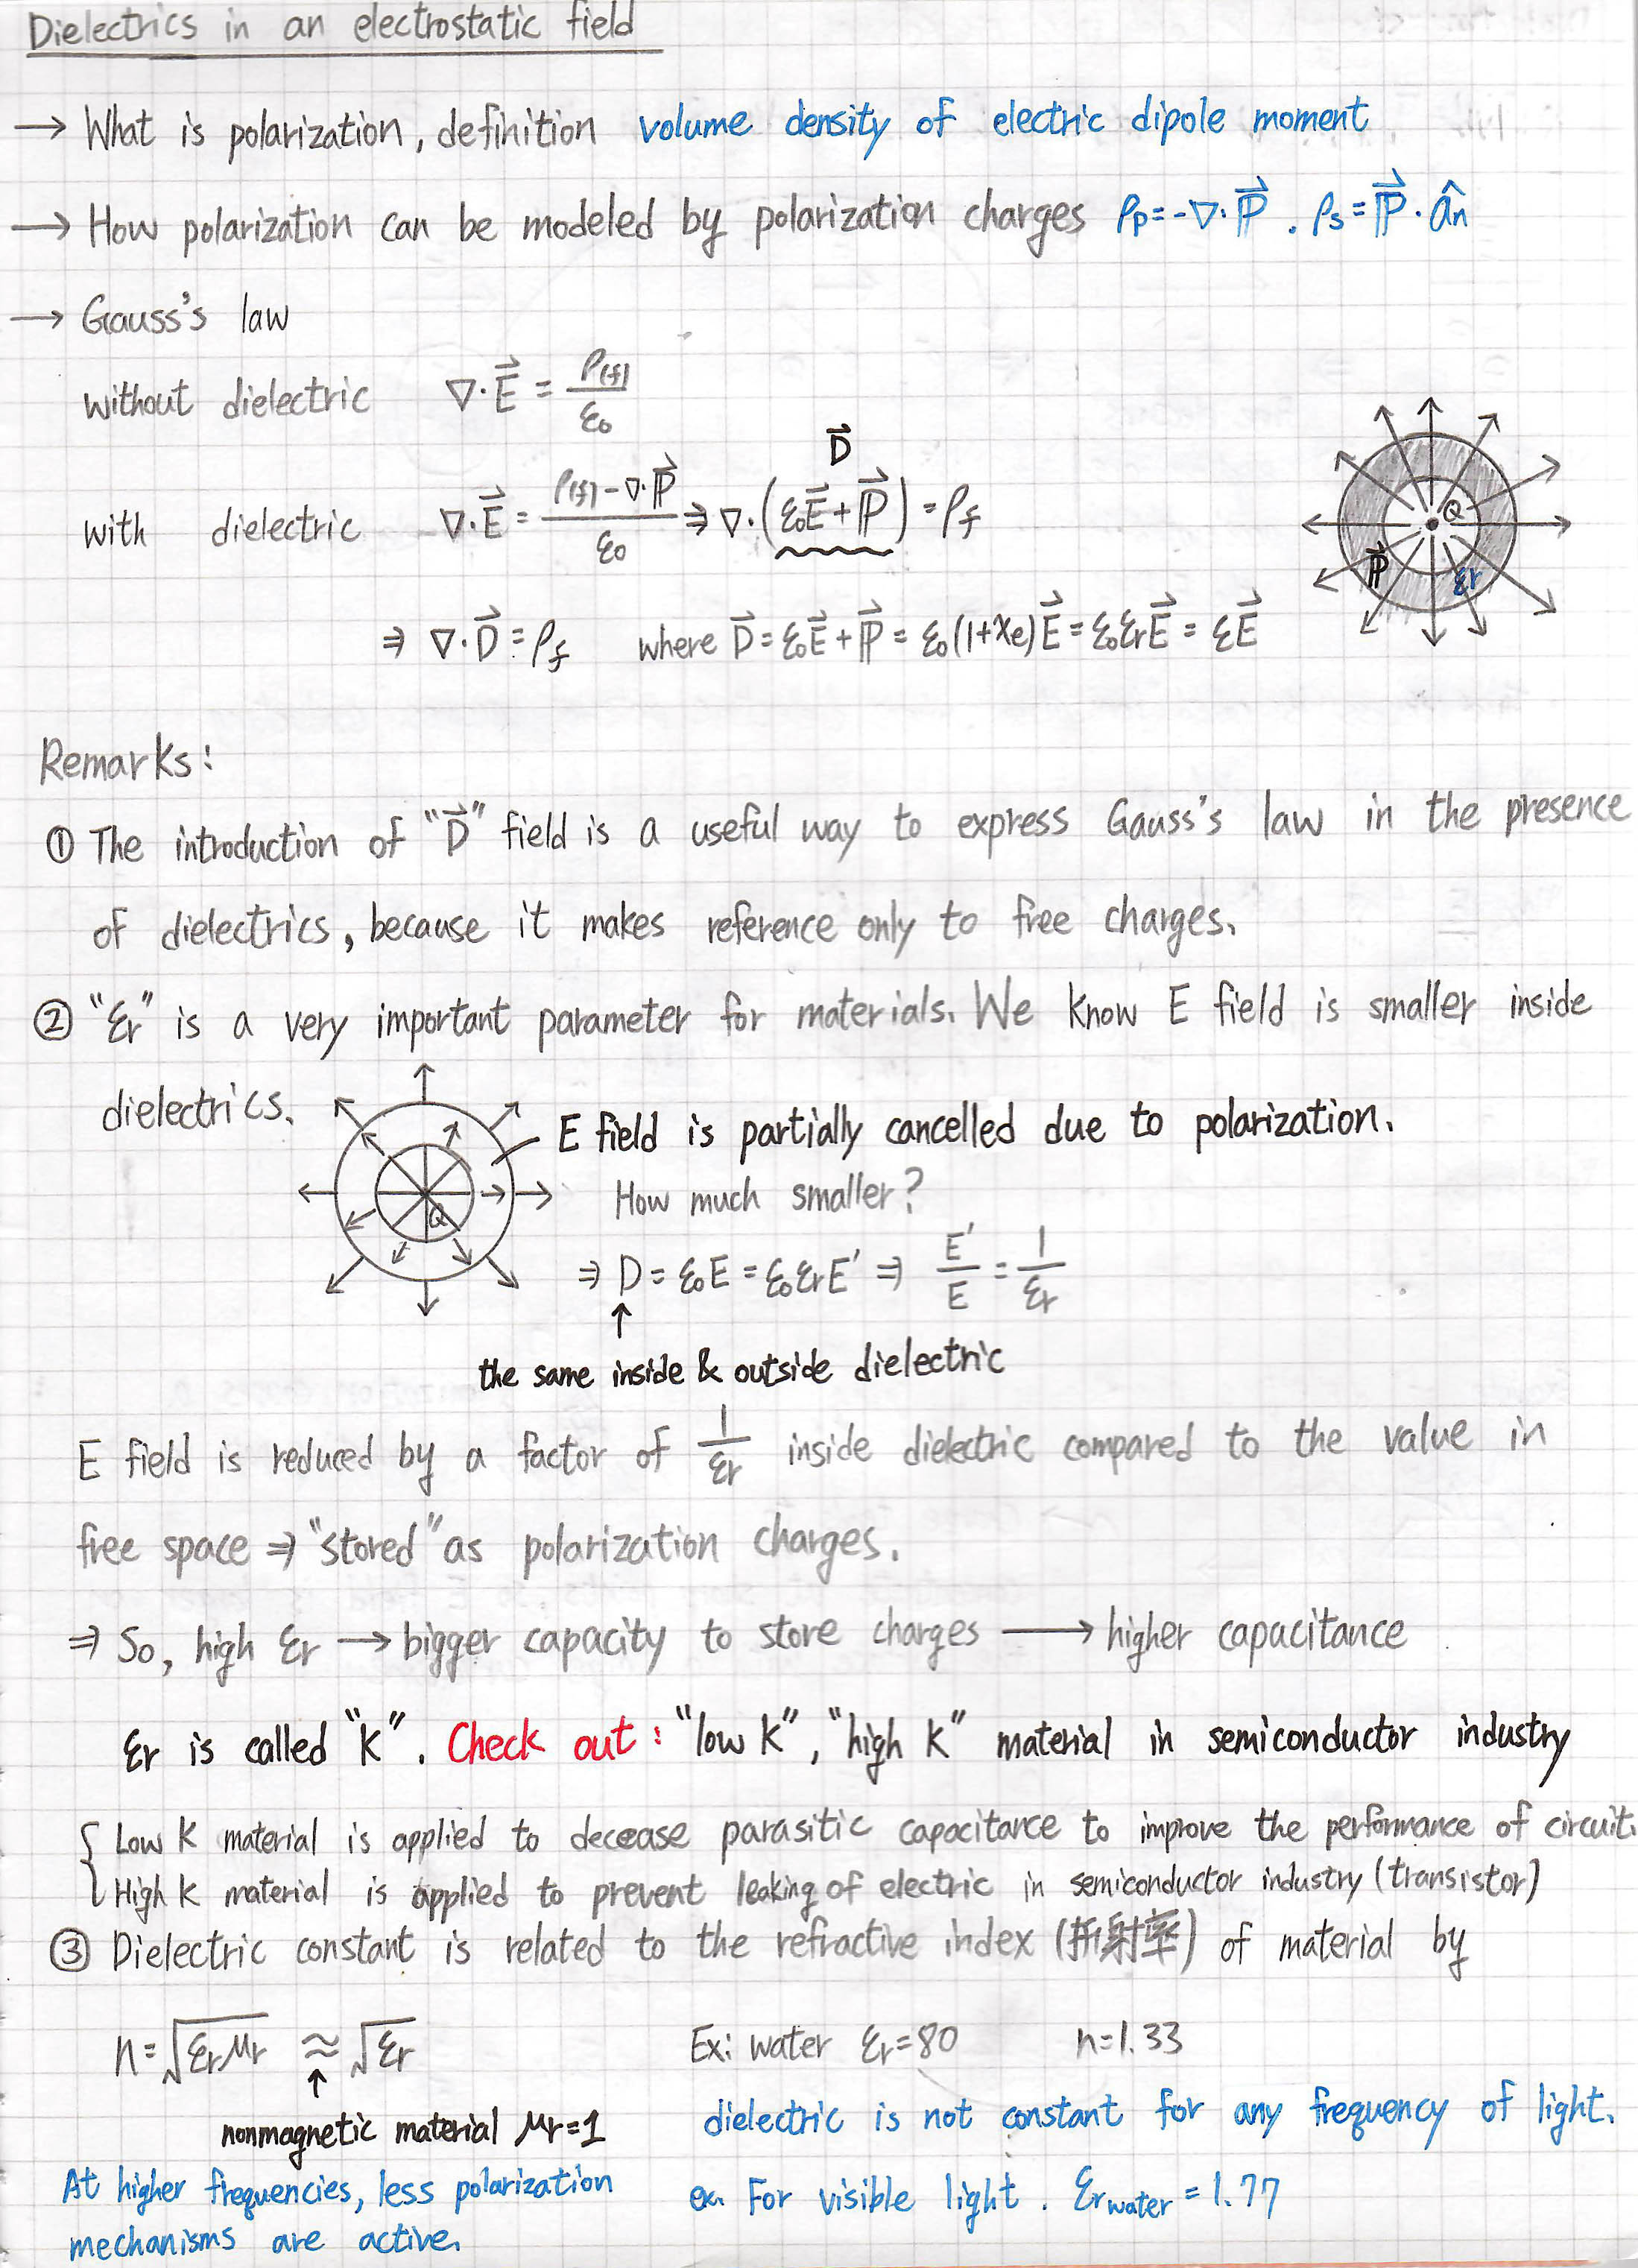 Dielectrics in an electrostatic field
→ What is polarization, definition volume density of electric dipole moment
→ How polarization can be modeled by polarization charges ρp=-∇·P⃗ . ρs=P⃗·ân
→ Gauss's law
without dielectric ∇·E⃗ = ρ(f)/ε0
D⃗
with dielectric ∇·E⃗ = (ρ(f)-∇·P⃗)/ε0 ⇒ ∇·(ε0E⃗+P⃗) = ρf
Q
P⃗ εr
⇒ ∇·D⃗=ρf where D⃗=ε0E⃗+P⃗=ε0(1+χe)E⃗=ε0εrE⃗=εE⃗
Remarks:
① The introduction of "D⃗" field is a useful way to express Gauss's law in the presence
of dielectrics, because it makes reference only to free charges.
② "εr" is a very important parameter for materials. We know E field is smaller inside
dielectrics.
E field is partially cancelled due to polarization.
How much smaller?
Q
⇒ D=ε0E=ε0εrE' ⇒ E'/E = 1/εr
↑
the same inside & outside dielectric
E field is reduced by a factor of 1/εr inside dielectric compared to the value in
free space ⇒ "stored" as polarization charges.
⇒ So, high εr → bigger capacity to store charges → higher capacitance
εr is called "k". Check out: "low k", "high k" material in semiconductor industry
{ Low k material is applied to decease parasitic capacitance to improve the performance of circuit.
High k material is applied to prevent leaking of electric in semiconductor industry (transistor)
③ Dielectric constant is related to the refractive index (折射率) of material by
n=√εrμr ≈ √εr Ex: water εr=80 n=1.33
↑
nonmagnetic material μr=1
dielectric is not constant for any frequency of light.
At higher frequencies, less polarization
mechanisms are active.
ex. For visible light. εr water = 1.77